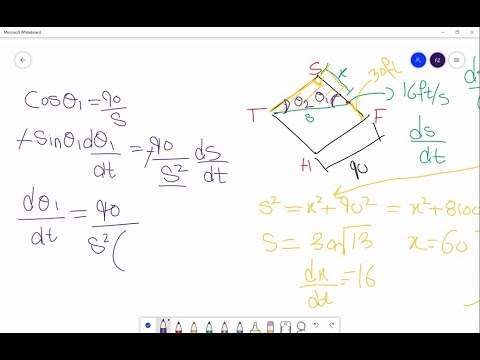 Microsoft Whiteboard
FZ
Cosθ₁ = 90/S
-Sinθ₁ dθ₁/dt = -90/S² ds/dt
dθ₁/dt = 90/S² (
S
x
30ft
θ₂ θ₁
16ft/s
T
s
F
ds/dt
H
90
S² = x² + 90² = x² + 8100
S = 30√13
x = 60
dx/dt = 16